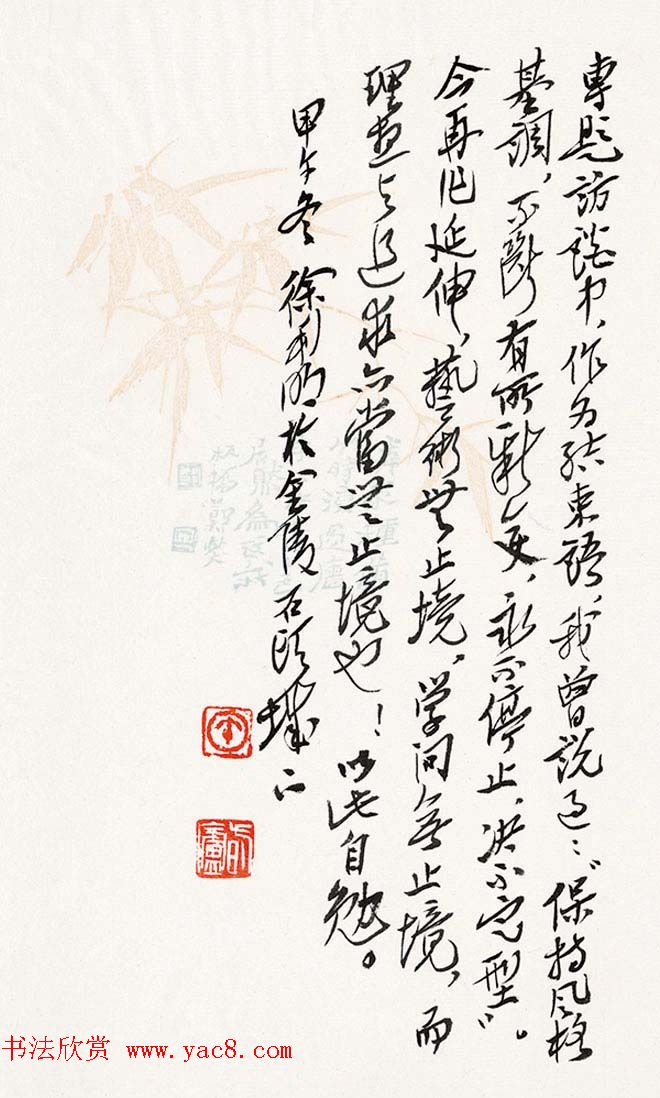 專题訪談中，作为结束語，我曾說过：“保持风格
基調，不斷有所新变，永不停止，决不定型”。
今再作延伸，藝術無止境，学问無止境，而
理想与追求亦當無止境也！以此自勉。
甲午冬 徐利明於金陵石頭城下
书法欣赏 www.yac8.com